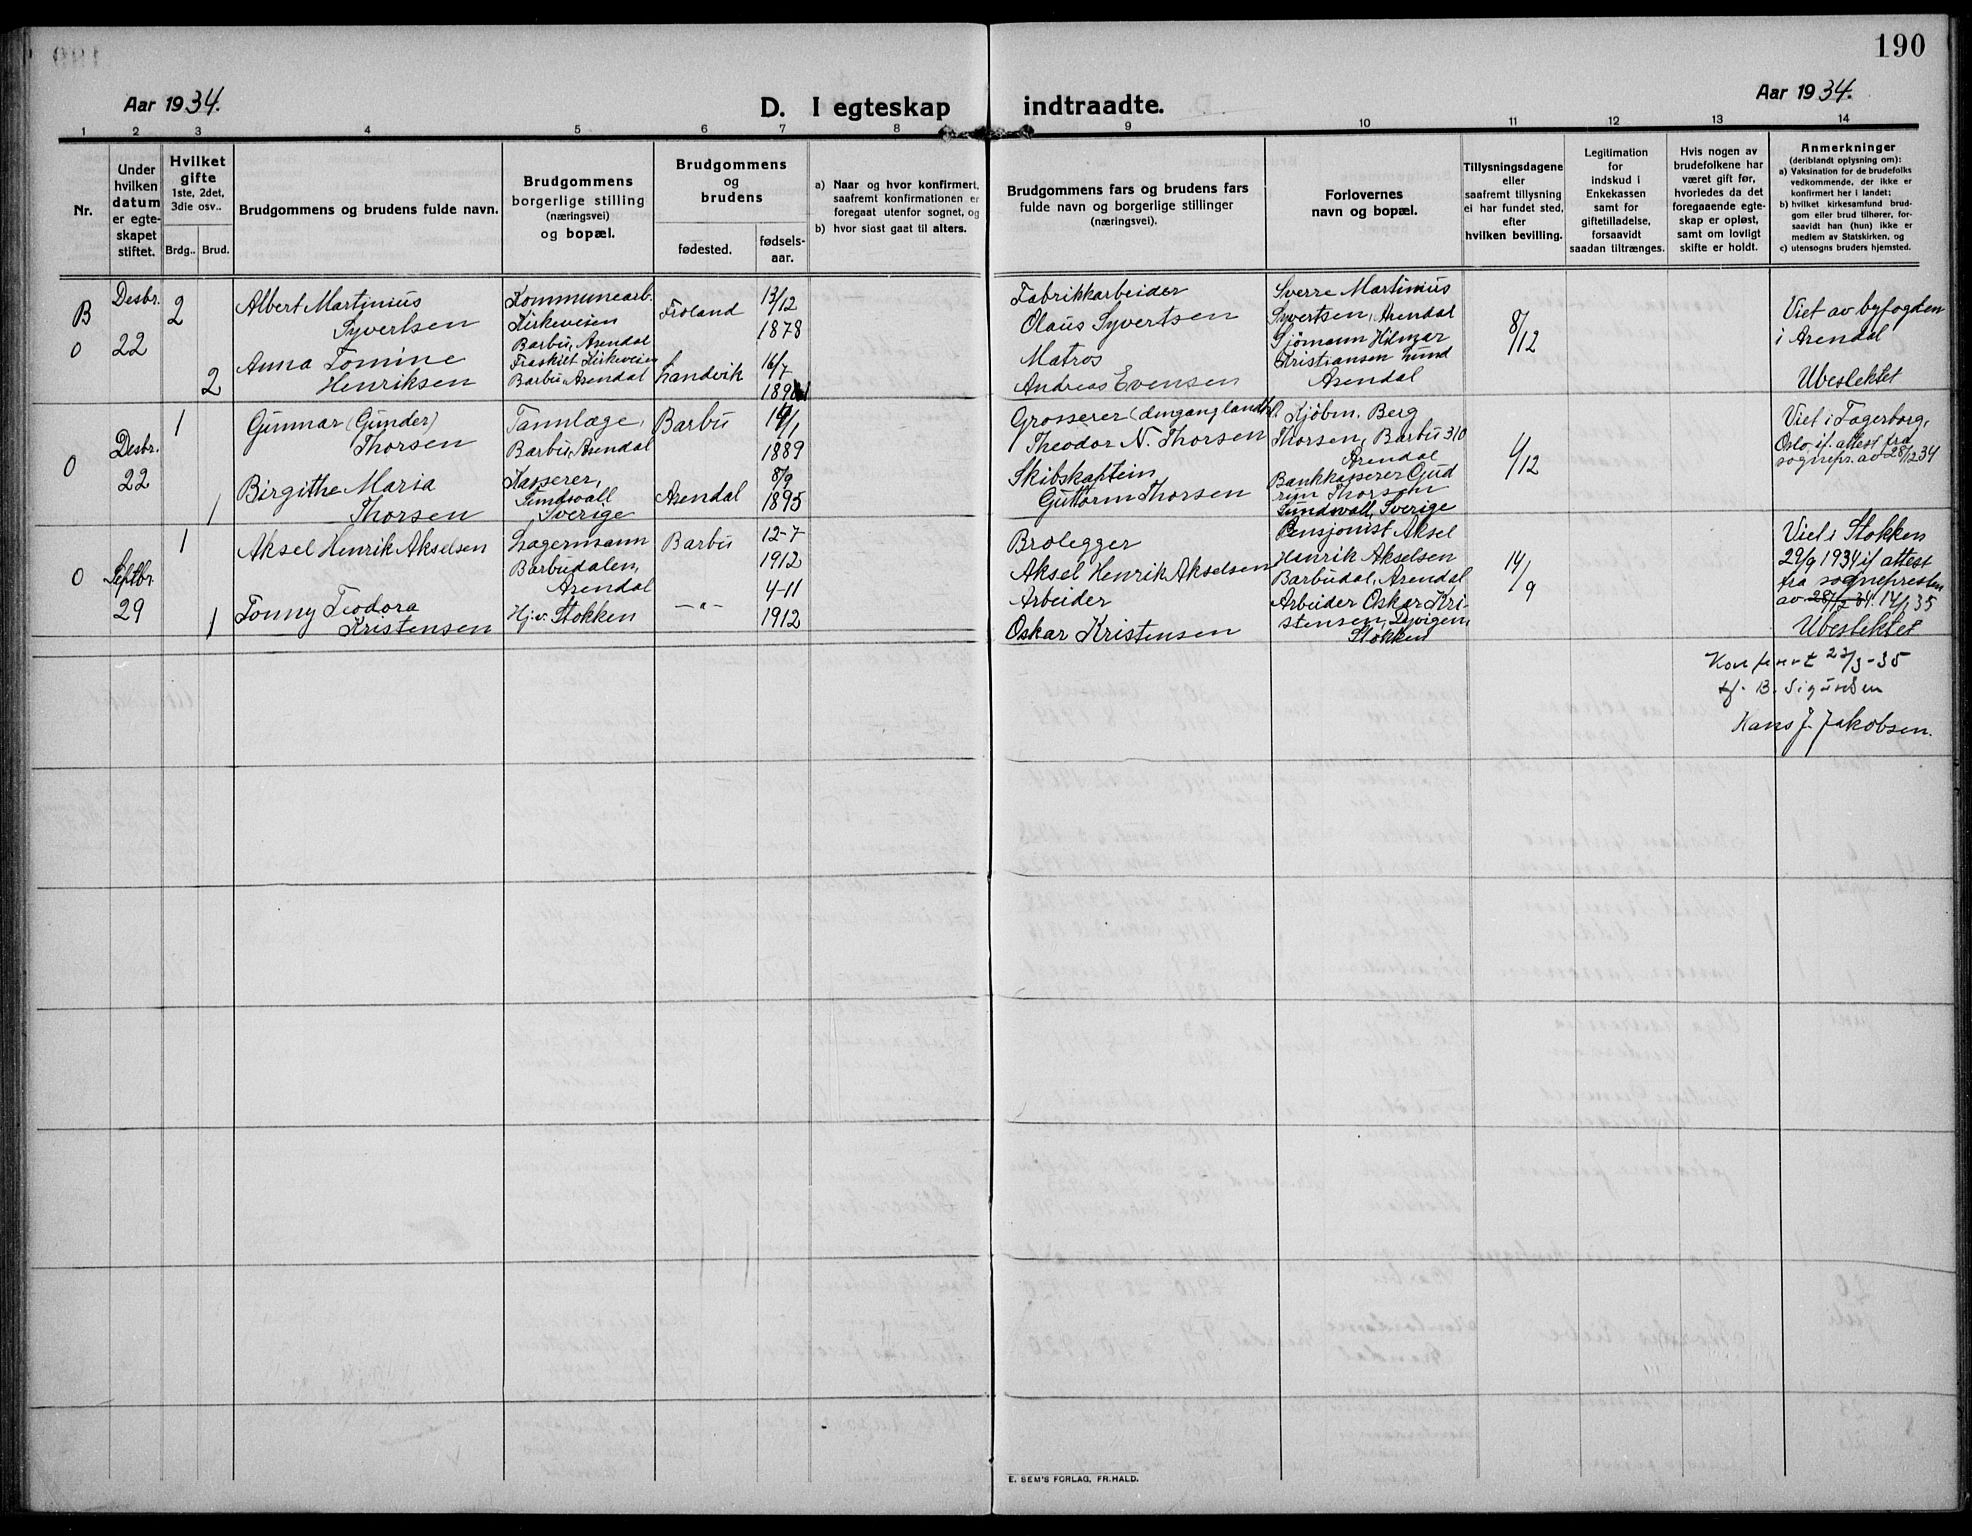 190
Aar 1934.
D. I egteskap indtraadte.
Aar 1934.
1 2 3 4 5 6 7 8 9 10 11 12 13 14
Nr.
Under
hvilken
datum
er egte-
skapet
stiftet.
Hvilket
gifte
1ste, 2det,
3die osv..
Brdg.. Brud.
Brudgommens og brudens fulde navn.
Brudgommens
borgerlige stilling
(næringsvei)
og bopæl.
Brudgommens
og
brudens
fødested.
fødsels-
aar.
a) Naar og hvor konfirmert,
saafremt konfirmationen er
foregaat utenfor sognet, og
b) hvor sidst gaat til alters.
Brudgommens fars og brudens fars
fulde navn og borgerlige stillinger
(næringsvei).
Forlovernes
navn og bopæl.
Tillysningsdagene
eller
saafremt tillysning
ei har fundet sted,
efter
hvilken bevilling.
Legitimation
for
indskud i
Enkekassen
samt for
giftetilladelse,
forsaavidt
saadan tiltrænges.
Hvis nogen av
brudefolkene har
været gift før,
hvorledes da det
foregaaende egte-
skap er opløst,
samt om lovligt
skifte er holdt.
Anmerkninger
(deriblandt oplysning om):
a) Vaksination for de brudefolks
vedkommende, der ikke er
konfirmert her i landet;
b) hvilket kirkesamfund brud-
gom eller brud tilhører, for-
saavidt han (hun) ikke er
medlem av Statskirken, og
c) utensogns bruders hjemsted.
B
0
Desbr.
22
2
2
Albert Martinius
Syvertsen
Anna Tomine
Henriksen
Kommunearb.
Kirkeveien
Barbu, Arendal
Fraskilt Kirkeveien
Barbu, Arendal
Froland
Landvik
13/12
1878
16/7
Fabrikkarbeider
Olaus Syvertsen
Matros
Andreas Evensen
Sverre Martinius
Syvertsen, Arendal
Sjømann Hilmar
Kristiansen Lund
Arendal
8/12
Viet av byfogden
i Arendal
Ubeslektet
0
Desbr.
22
1
1
Gunnar (Gunder)
Thorsen
Birgithe Maria
Thorsen
Tannlæge,
Barbu, Arendal
Kasserer,
Sundsvall
Sverige
Barbu
Arendal
1889
8/9
1895
Grosserer
Theodor N. Thorsen
Skibskaptein
Guttorm Thorsen
Kjøbm. Berg
Thorsen, Barbu 310
Arendal
Bankkasserer Gud
run Thorsen
Sundsvall, Sverige
4/12
Viet i Fagerborg,
Oslo, if. attest fra
sognepr. av 28/12 34
0
Septbr.
29
1
1
Aksel Henrik Akselsen
Tonny Teodora
Kristensen
Lagermann
Barbudalen,
Arendal
Hj.v. Stokken
Barbu
-"-
12-7
1912
4-11
1912
Brolegger
Aksel Henrik Akselsen
Arbeider
Oskar Kristensen
Pensjonist Aksel
Henrik Akselsen
Barbudal, Arendal
Arbeider Oskar Kri-
stensen, Dyvigen,
Stokken
14/9
Viet i Stokken
29/9 1934 if attest
fra sognepresten
av 28/12 34. 14/1 35
Ubeslektet
Konferert 23/3-35
B. Sigurdsen
Hans J. Jakobsen.
E. SEM'S FORLAG, FR.HALD.